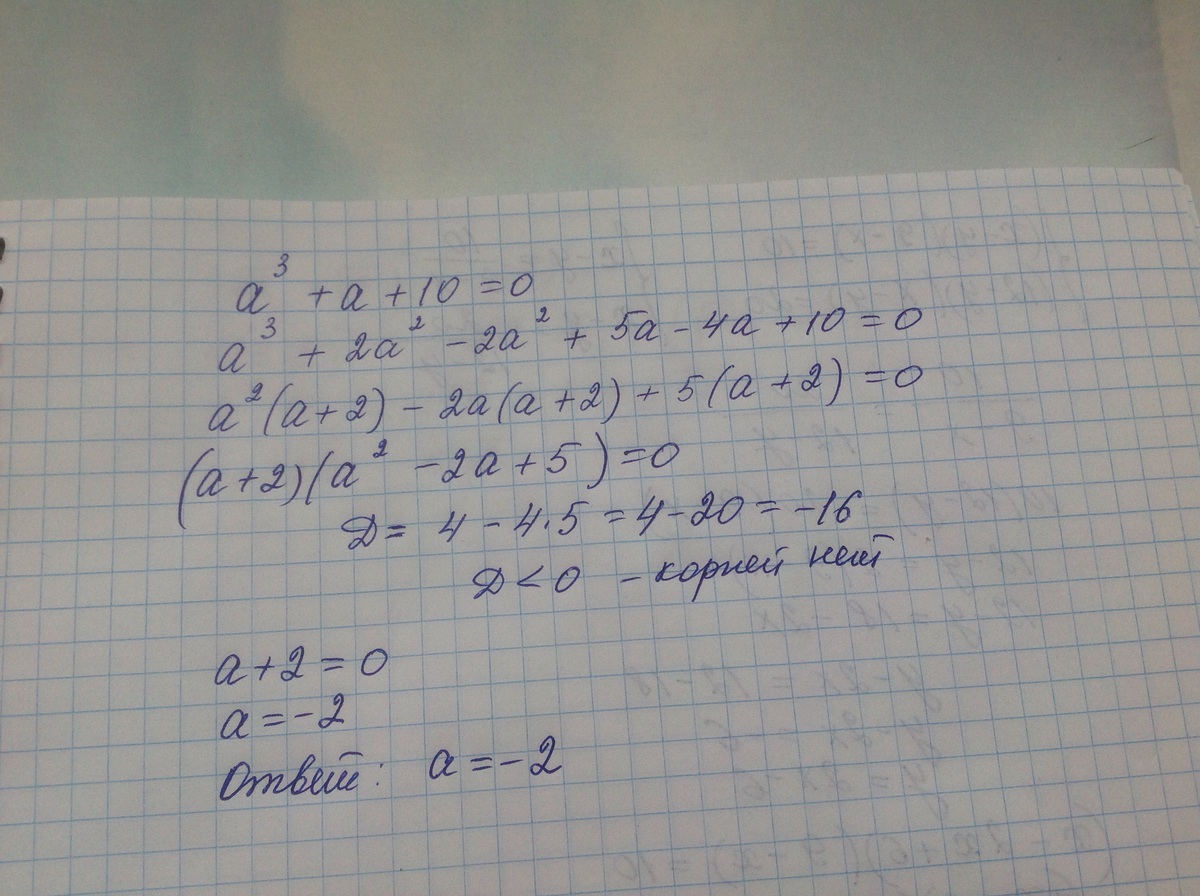 a³ + a + 10 = 0
a³ + 2a² - 2a² + 5a - 4a + 10 = 0
a²(a+2) - 2a(a+2) + 5(a+2) = 0
(a+2)(a² - 2a + 5) = 0
D = 4 - 4·5 = 4 - 20 = -16
D < 0 - корней нет
a + 2 = 0
a = -2
Ответ: a = -2